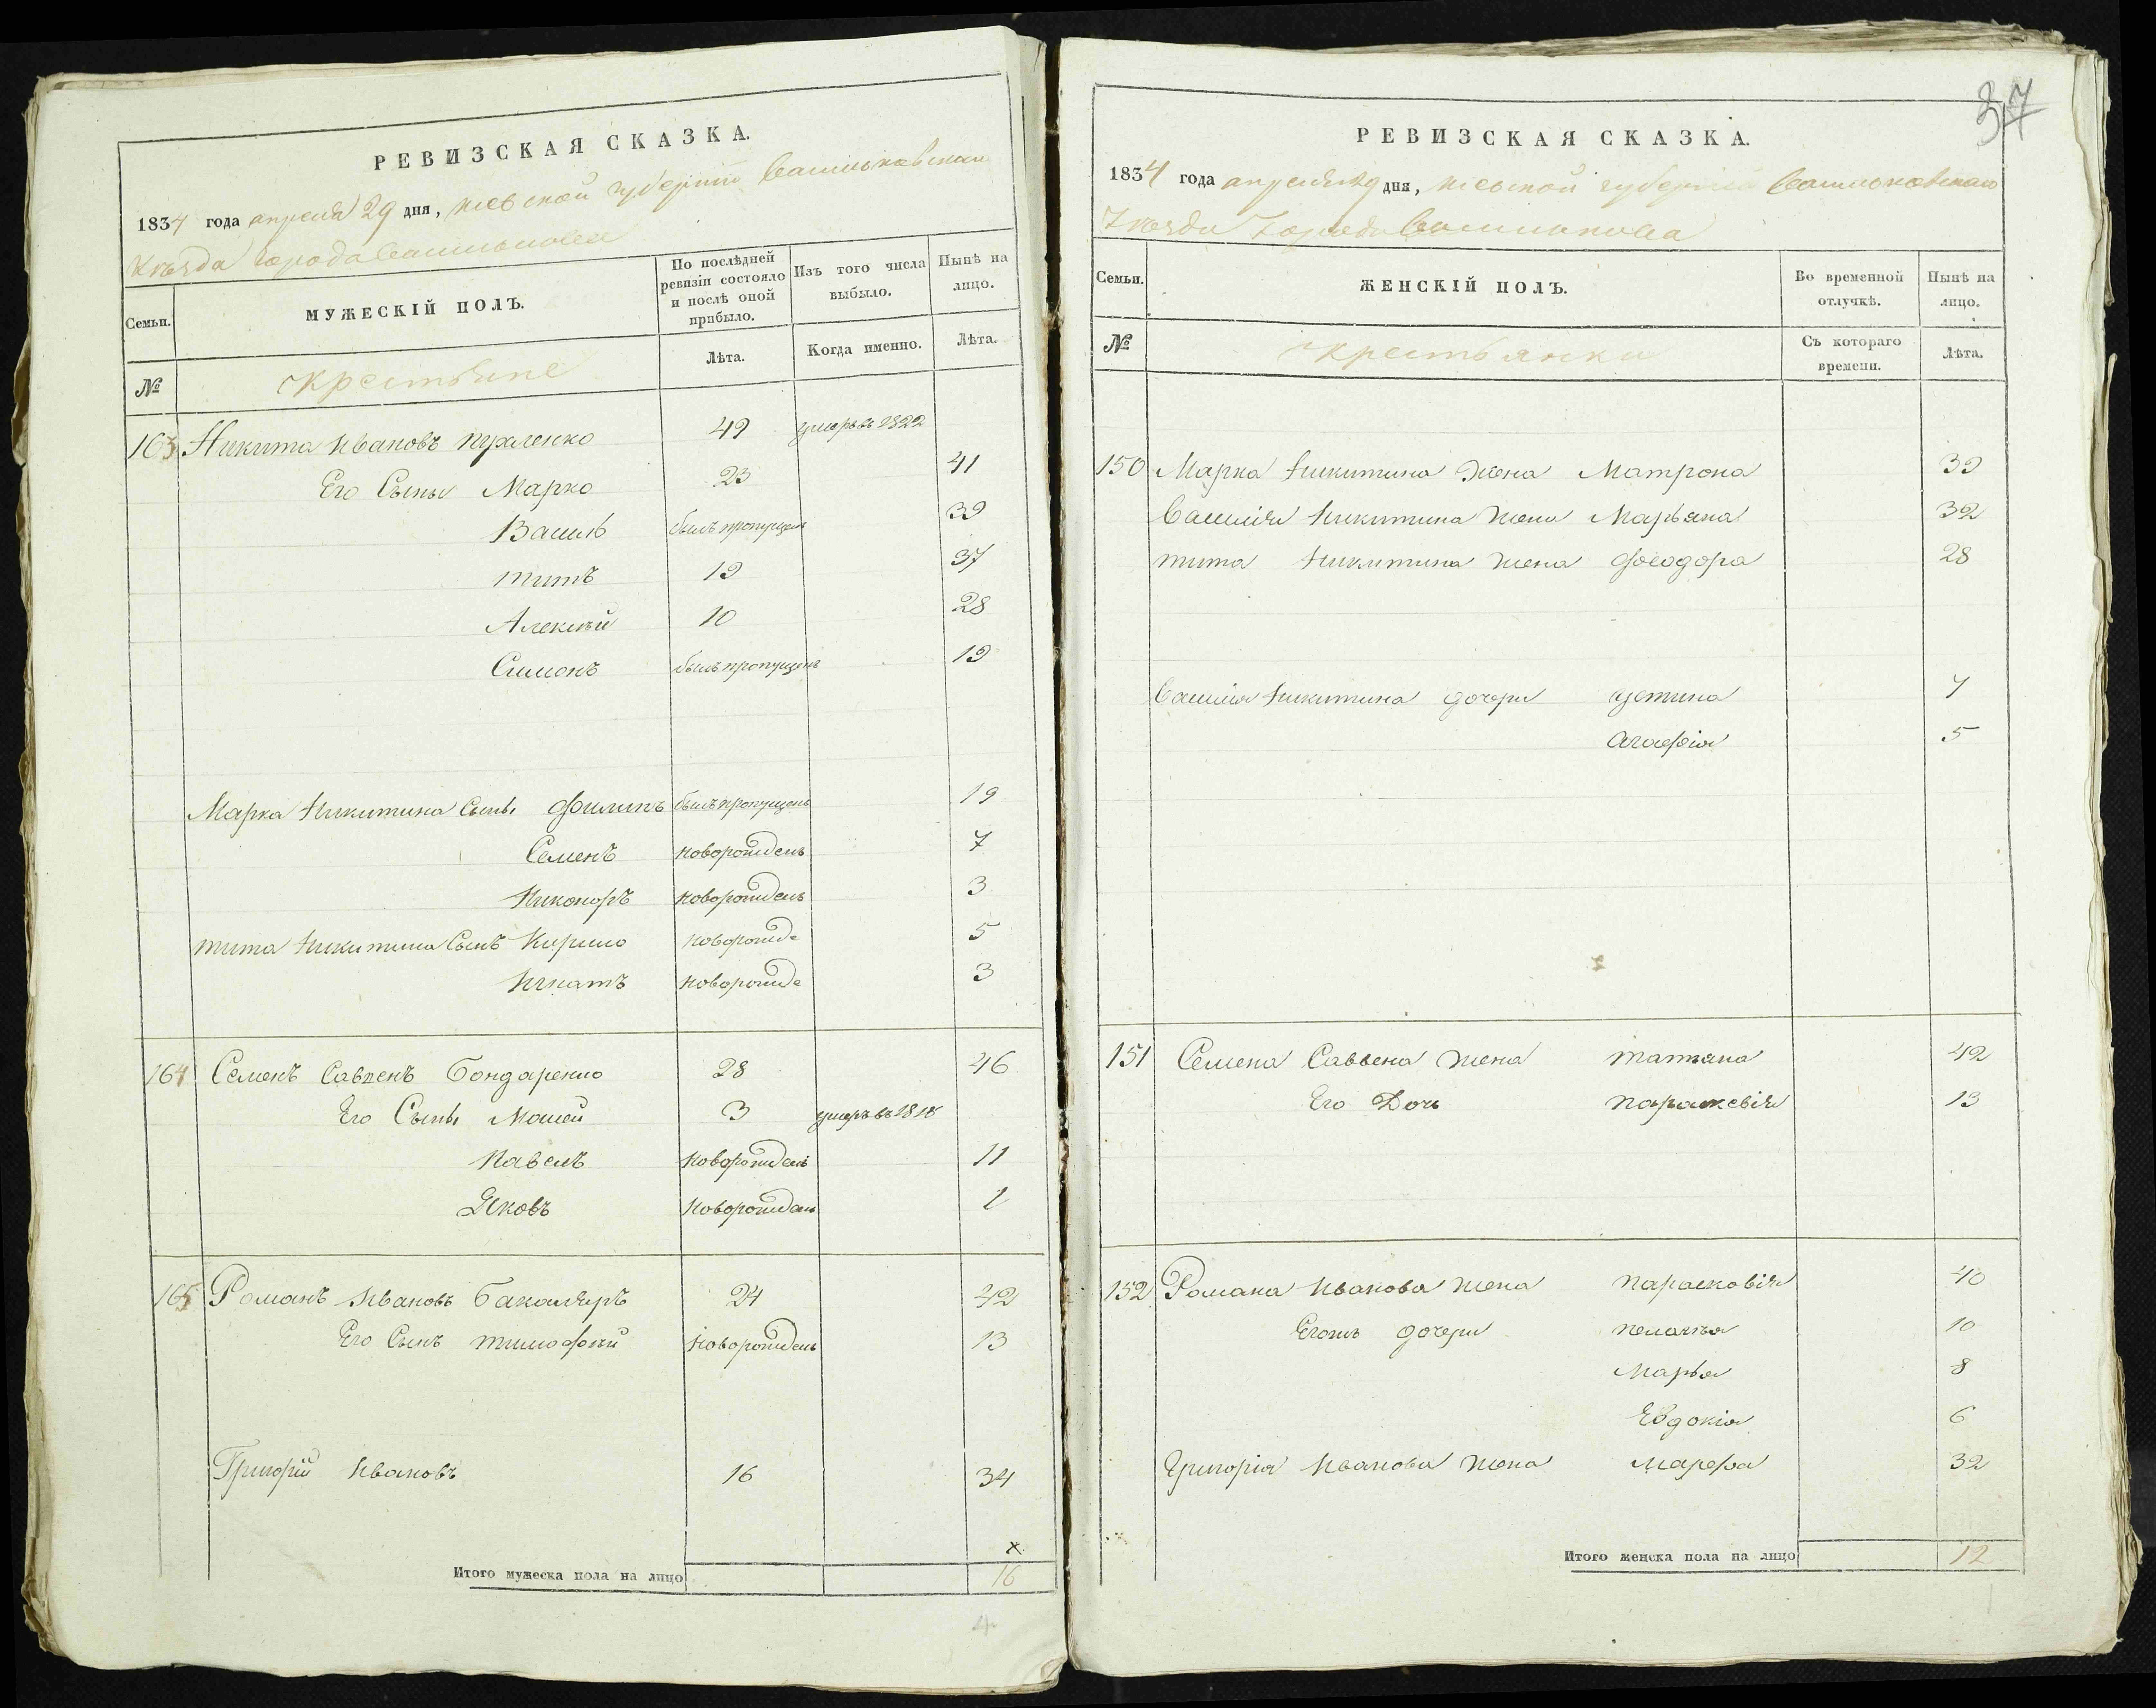 РЕВИЗСКАЯ СКАЗКА.
1834 года апреля 29 дня, Киевской губернии Васильковскаго
Уезда Города Василькова
Семьи. МУЖЕСКІЙ ПОЛЪ. По послѣдней ревизіи состояло и послѣ оной прибыло. Изъ того числа выбыло. Нынѣ на лицо.
№ крестьяне Лѣта. Когда именно. Лѣта.
163 Никита Ивановъ 49 умеръ въ 1822
Его Сыны Марко 23 41
Василь былъ пропущенъ 39
титъ 19 37
Алексѣй 10 28
Симонъ былъ пропущенъ 19
Марка Никитина Сыны Филипъ былъ пропущенъ 19
Семенъ новорожденъ 7
Никоноръ новорожденъ 3
тита Никитина Сынъ Кирило новорожде 5
Игнатъ новорожде 3
164 Семенъ Саввенъ Бондаренко 28 46
Его Сыны Мосей 3 умеръ въ 1818
Павелъ новорожденъ 11
Яковъ новорожденъ 1
165 Романъ Ивановъ Бакаляръ 24 42
Его Сынъ тимофѣй новорожденъ 13
Григорій Ивановъ 16 34
x
Итого мужеска пола на лицо 16
4
37
РЕВИЗСКАЯ СКАЗКА.
1834 года апреля 29 дня, Киевской губернии Васильковскаго
Уезда Города Василькова
Семьи. ЖЕНСКІЙ ПОЛЪ. Во временной отлучкѣ. Нынѣ на лицо.
№ крестьянки Съ котораго времени. Лѣта.
150 Марка Никитина жена Матрона 39
Василія Никитина жена Марьяна 32
тита Никитина жена Феодора 28
Василія Никитина дочери устина 7
Агафія 5
151 Семена Саввена жена татьяна 42
Его Дочь параскевія 13
152 Романа Иванова жена парасковія 40
Егожъ дочери пелагѣя 10
Марья 8
Евдокія 6
Григорія Иванова жена Марфа 32
Итого женска пола на лицо 12